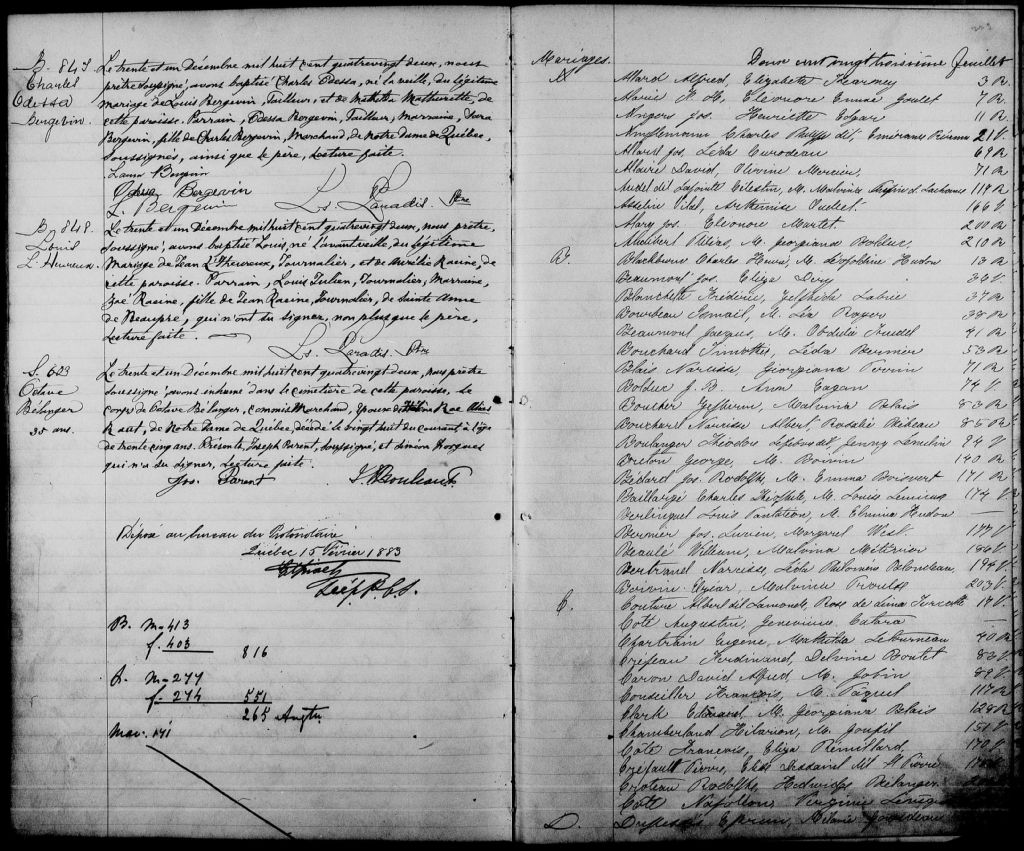 B. 847
Charles
Odessa
Bergevin.
Le trente et un Décembre mil huit cent quatre vingt deux, nous
prêtre soussigné, avons baptisé Charles Odessa, né la veille, du légitime
mariage de Louis Bergevin, Tailleur, et de Mathilda Mathurette, de
cette paroisse. Parrain, Odessa Bergevin, Tailleur, Marraine, Laura
Bergevin, fille de Charles Bergevin, Marchand, de Notre Dame de Québec,
soussignés, ainsi que le père, Lecture faite.
Laura Bergevin
Odessa Bergevin
L. Bergevin
Ls. Paradis. Ptre
B. 848.
Louis
L'Heureux
Le trente et un Décembre mil huit cent quatre vingt deux, nous prêtre,
soussigné, avons baptisé Louis, né l'avant veille, du légitime
Mariage de Jean L'Heureux, Journalier, et de Aurélie Racine, de
cette paroisse. Parrain, Louis Julien, Journalier, Marraine,
Zoé Racine, fille de Jean Racine, Journalier, de Sainte Anne
de Beaupré, qui n'ont su signer, non plus que le père,
Lecture faite.
Ls. Paradis. Ptre
Octave
Bélanger
35 ans.
Le trente et un Decembre mil huit cent quatre vingt deux, nous prêtre
soussigné, avons inhumé dans le cimetière de cette paroisse, le
corps de Octave Bélanger, commis Marchand, Epoux de
de Notre Dame de Québec, décédé le vingt huit du courant à l'âge
de trente cinq ans. Présents, Joseph Parent, soussigné, et
qui n'a su signer, Lecture faite.
Jos. Parent
Déposé au bureau du Protonotaire
Québec 15 Février 1883
B. m- 413
f. 403 816
m- 277
f- 274 551
265 Augtn
Mar. 171
Mariages.
Deux cent vingt troisième Feuillet
A
Alard Alfred Elizabeth Kearney 3 R.
Alarie Eléonore Emma Goulet 7 R.
Angers Jos. Henriette Edgar 11 R
Amplemann Charles Philipp dit, 21 V.
Allard Jos, Léda Curodeau 69 R
Allaire David, Elvine Mercier, 71 R
Audet dit Lapointe Célestin, M. Malvina 119 R
Asselin Vital, Arthémise Ouelet. 166 V
Alary Jos. Eléonore Martel. 200 R
Audibert M. Georgiana Bolduc, 210 R
B.
Blackburn Charles Henri, M. Hudon 13 R
Beaumont Jos. Eliza Dery
Blanchette Frédéric, Labrie 37 R
Bourbeau Ismaël, M. Léa Rogers
Beaumont Jacques, M. Obdélie Trudel 41 R
Bouchard Timothée, Léda Bernier 53 R
Blais Narcisse, Georgiana Poirin 71 R
Bolduc J. B. Ann Eagan 74 V
Boucher Malvina Blais 83 R
Bouchard Narcisse Albert, Rosalie Bédeau 85 R
Boulanger Théodore Jenny Lemelin
Breton George, M. Boivin 140 R
Bédard Jos. Rodolphe, M. Emma Boisvert 171 R
Baillargé Charles Théophile, M. Louise Lemieux 174 V
Berlinguet Louis M. Elmina Hudon —
Bernier Jos. Lucien, Margaret West. 177 V
Beaulé William, Malvina Métivier 186 V
Bertrand Narcisse, Léda Philomène Blondeau 194 V
Boivin Elzéar, Malvina Proulx 203 V
C.
Couture Albert dit Lamonde, Rose de Lima Turcotte
Coté Augustin, Geneviève Calora —
Chartrain Eugène, Mathilda Letourneau 40 R
Crépeau Ferdinand, Delvine Boutet 82 V
Caron David Alfred, M. Jobin 89 V
Conseiller François, M. Paquet 117 R
Clark Edouard, M. Georgiana Blais 128 R
Chamberland Hilarion, M. Goupil 151 V
Côté François, Eliza Rémillard, 170 V
Crépault Pierre, dit St Pierre
Croteau Rodolphe, Hedwidge Bélanger.
Côté Napoléon, Virginie
D.